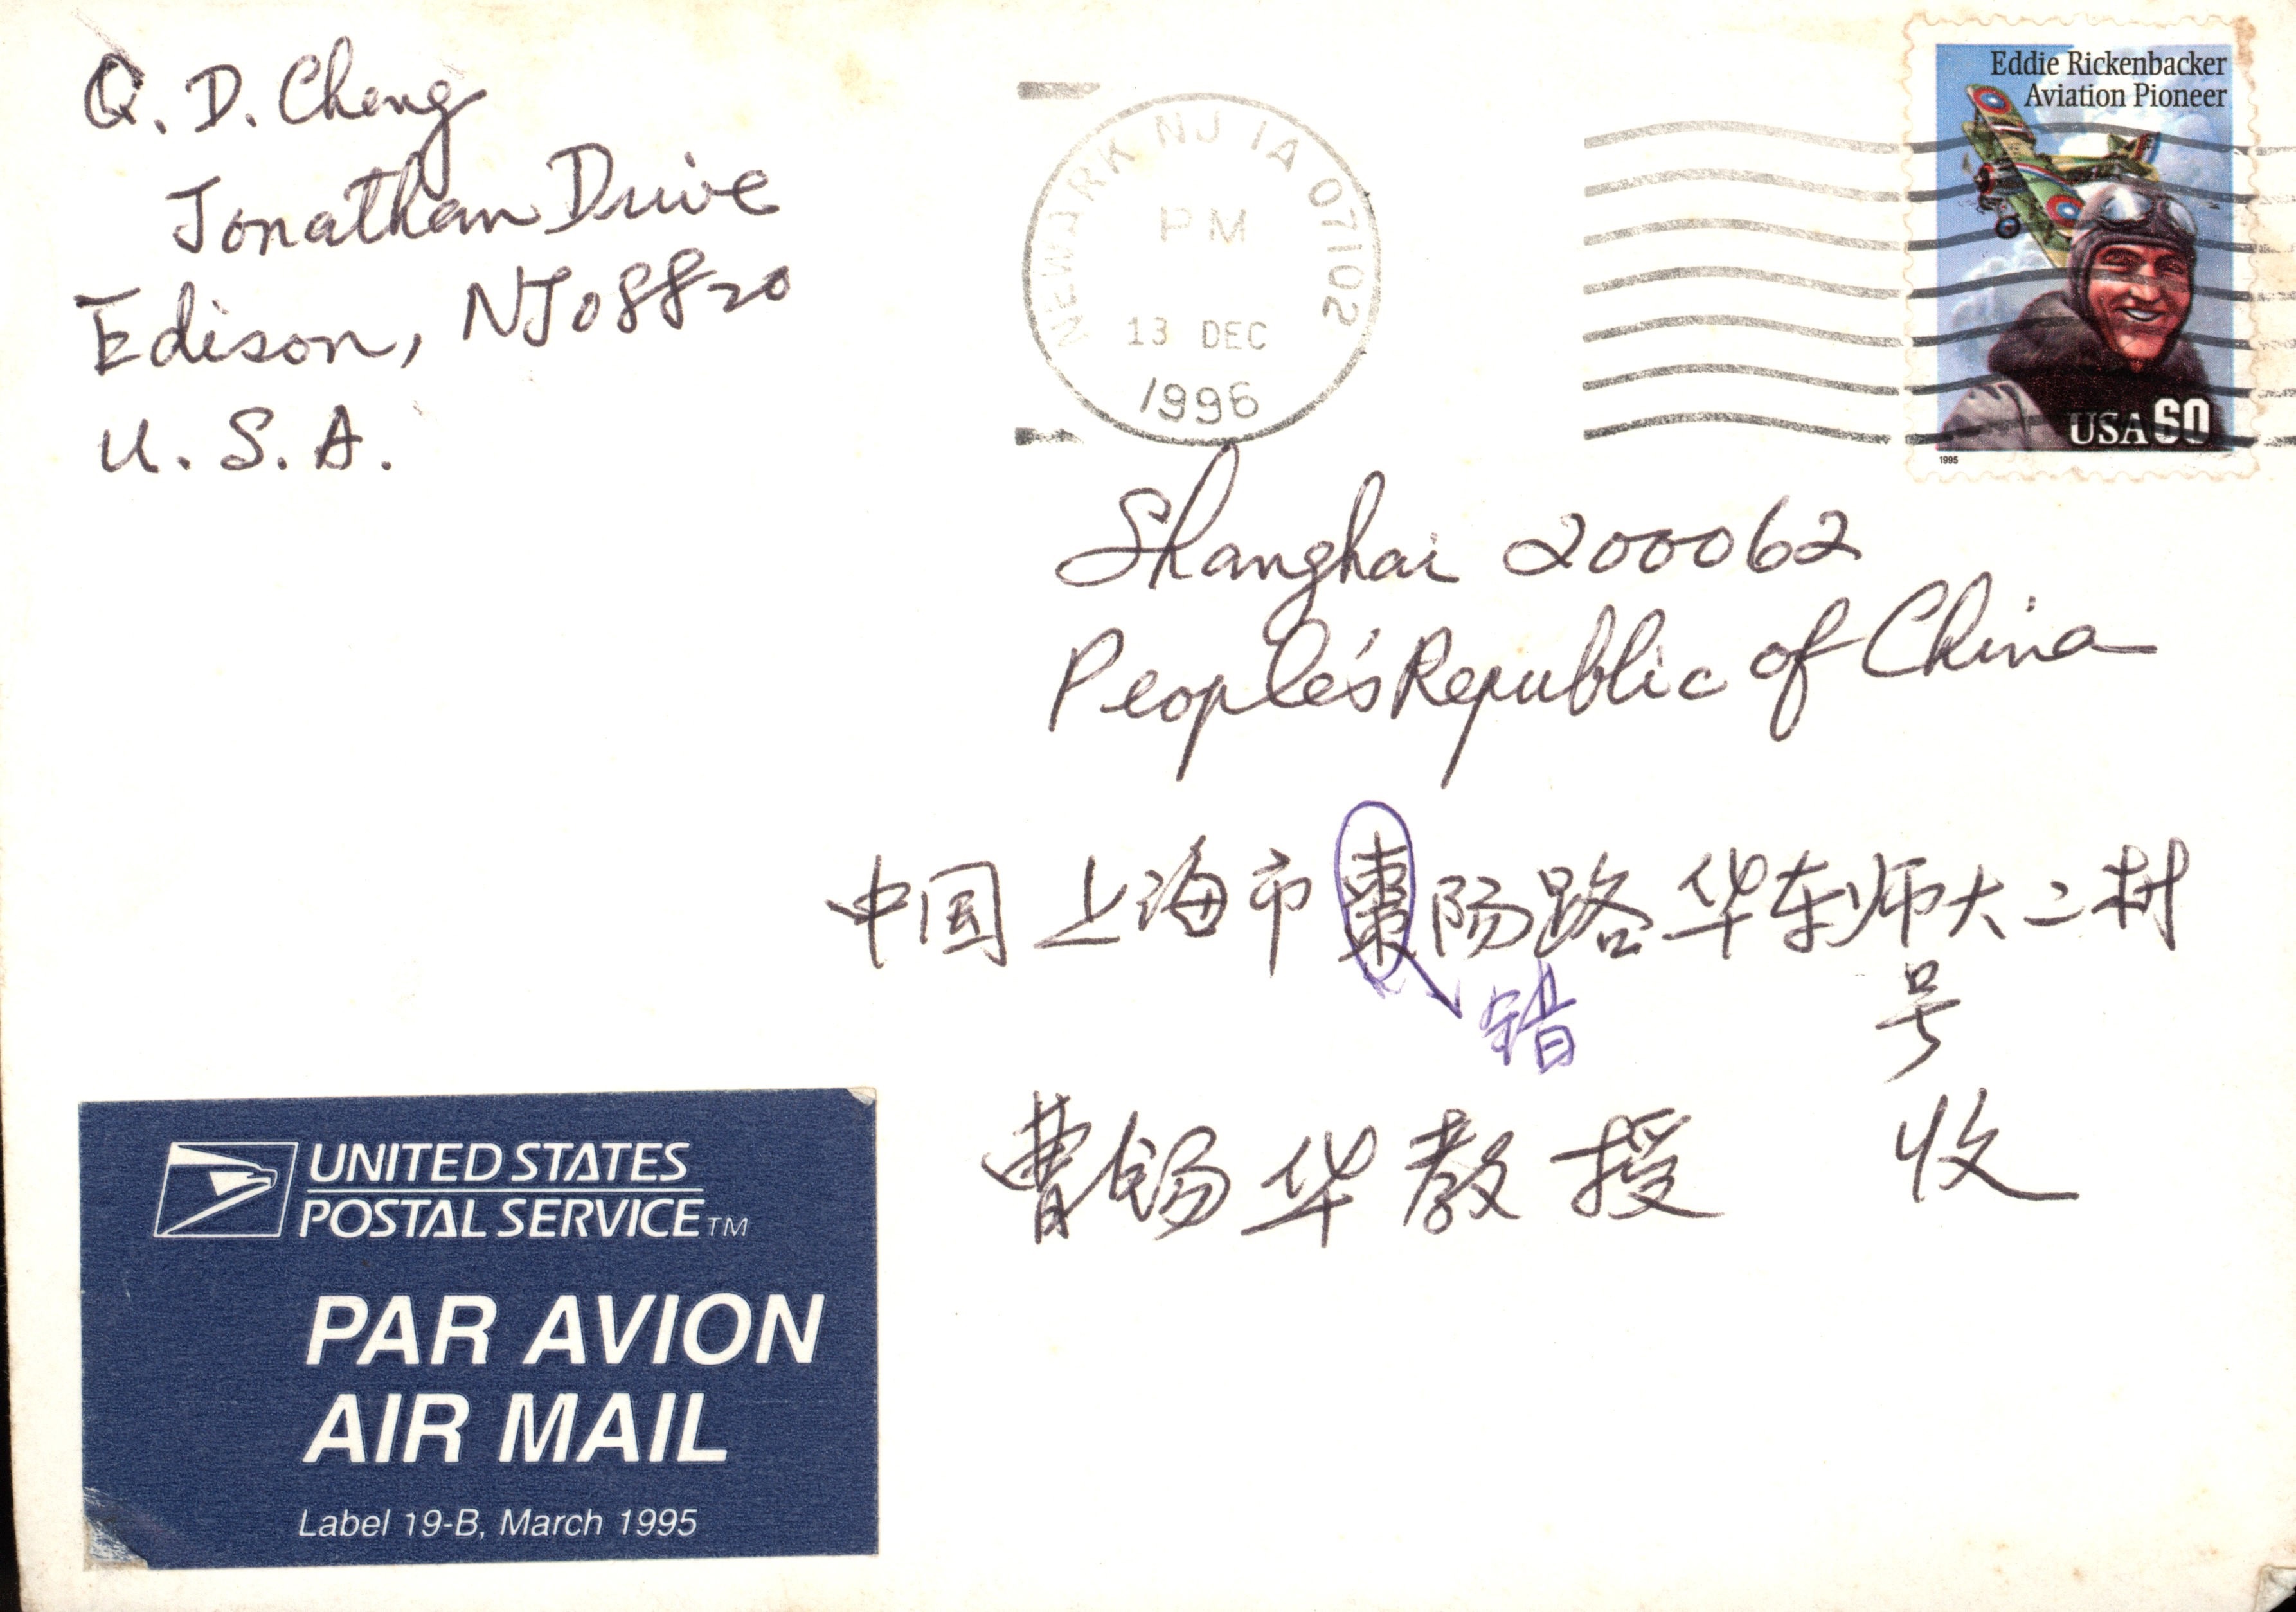 Q. D. Cheng
Jonathan Drive
Edison, NJ 08820
U. S. A.
NEWARK NJ IA 07102
PM
13 DEC
1996
Eddie Rickenbacker
Aviation Pioneer
USA 60
1995
Shanghai 200062
People's Republic of China
中国上海市棗阳路华东师大二村
号
错
曹锡华教授 收
UNITED STATES
POSTAL SERVICE TM
PAR AVION
AIR MAIL
Label 19-B, March 1995